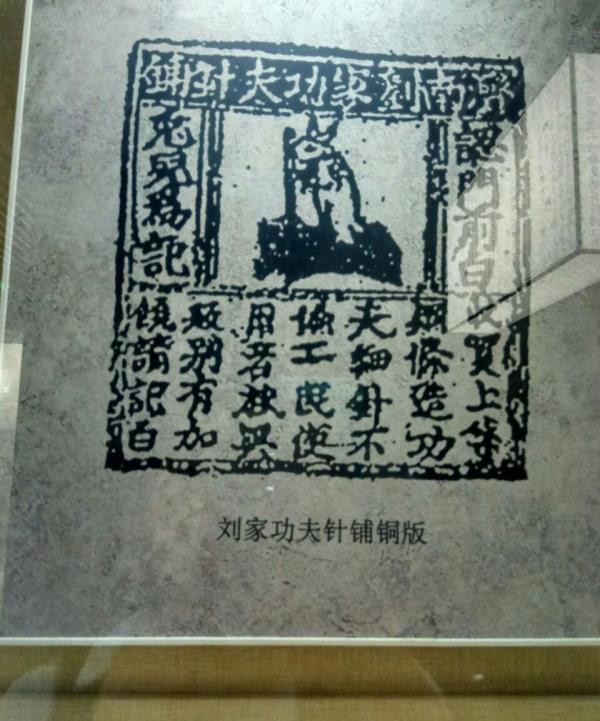 濟南劉家功夫針鋪
認門前白
兔兒爲記
收買上等
鋼條造功
夫細針不
偷工民便
用若被興
販別有加
饒請記白
刘家功夫针铺铜版